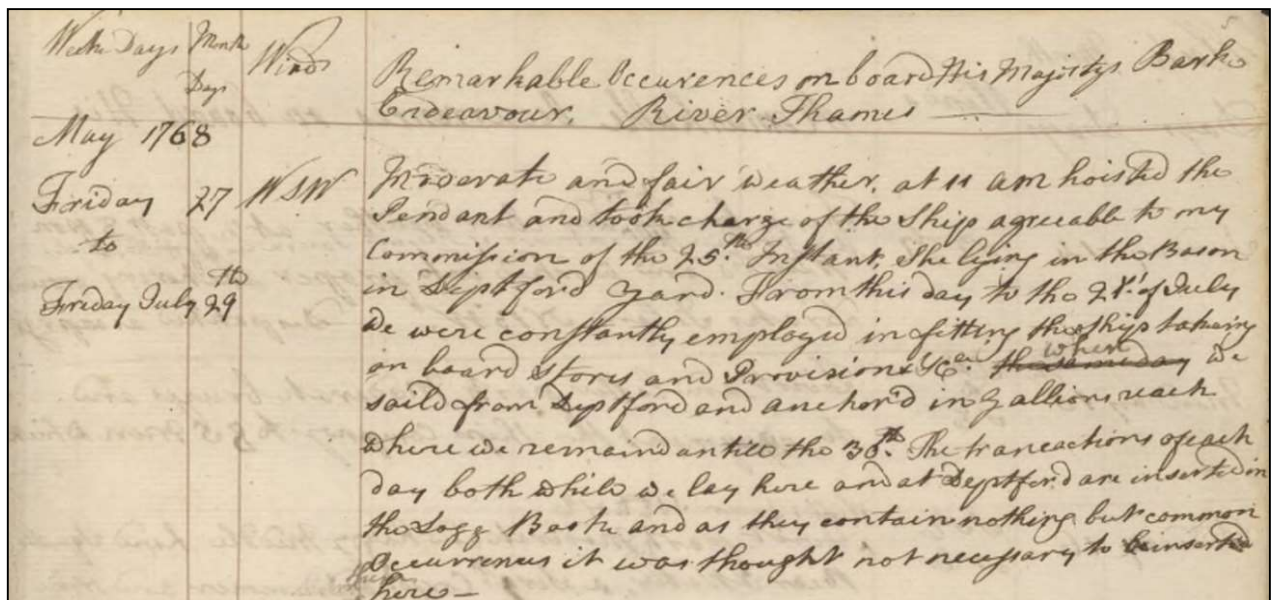 Week Days Month Days Winds
Remarkable Occurences on board His Majestys Bark
Endeavour. River Thames
May 1768
Friday 27 WSW
to
Friday July 29th
Moderate and fair weather, at 11 am hoisted the
Pendant and took charge of the Ship agreable to my
Commission of the 25th. Instant, She lying in the Bason
in Deptford Yard. From this day to the 21st. of July
we were constantly employed in fitting the ship takeing
on board Stores and Provisions &Ca. the same day when we
saild from Deptford and anchor'd in Gallions reach
where we remaind untill the 30th. The transactions of each
day both while we lay here and at Deptford are inserted in
the Logg Book and as they contain nothing but common
Occurrences it was thought not necessary to be inserted
here—